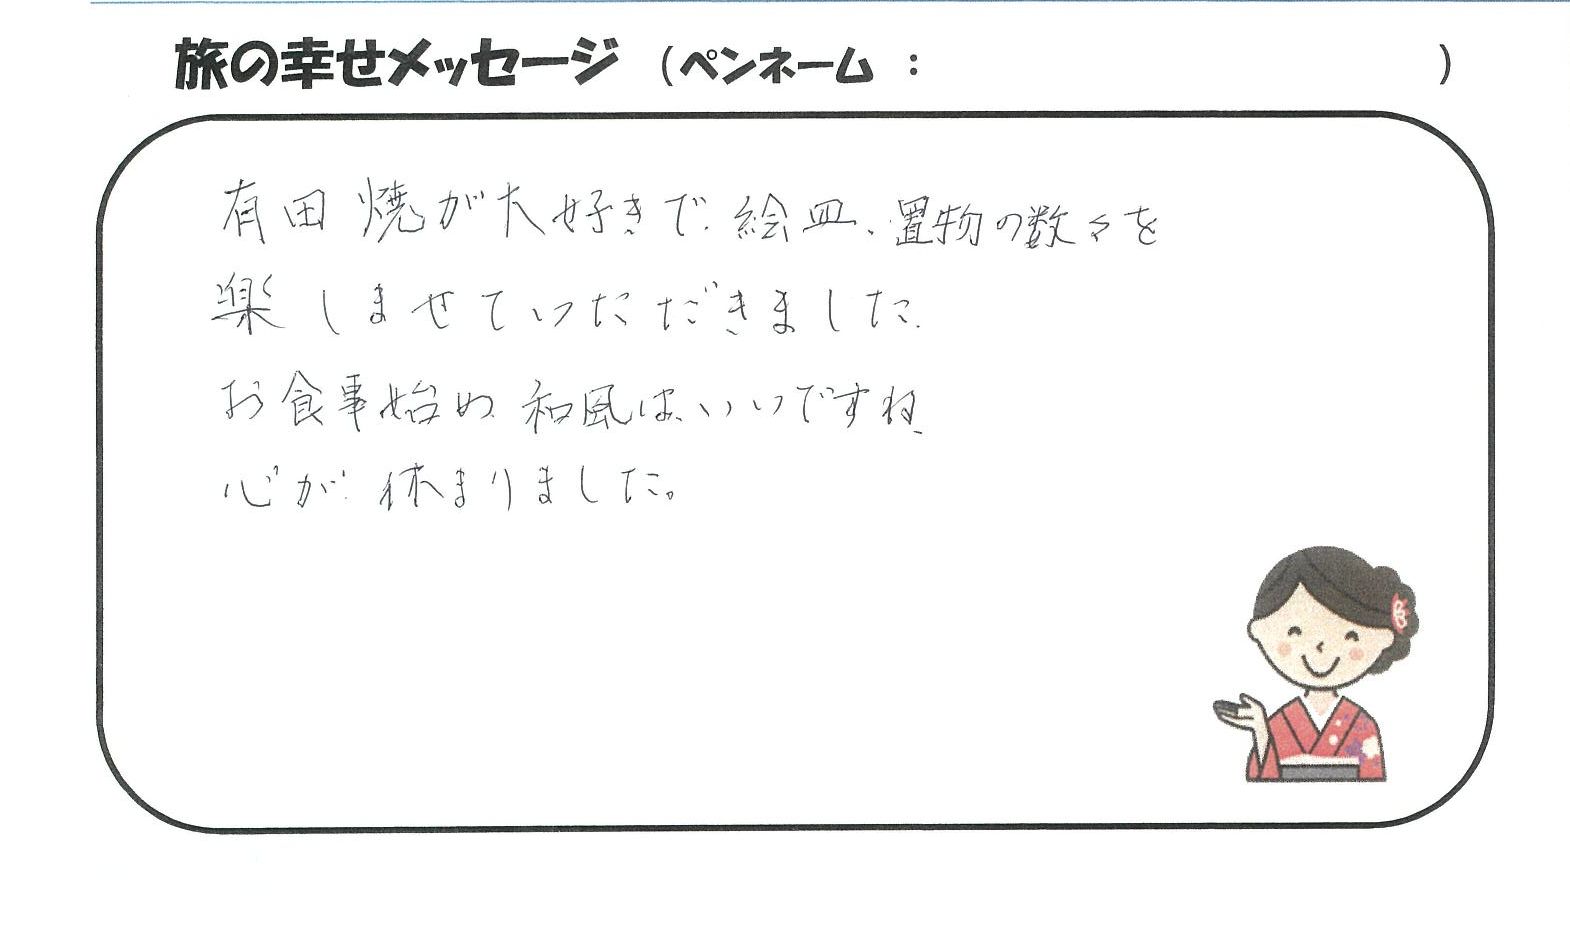 旅の幸せメッセージ (ペンネーム : )
有田焼が大好きで、絵皿、置物の数々を
楽しませていただきました。
お食事始め、和風は、いいですね、
心が休まりました。